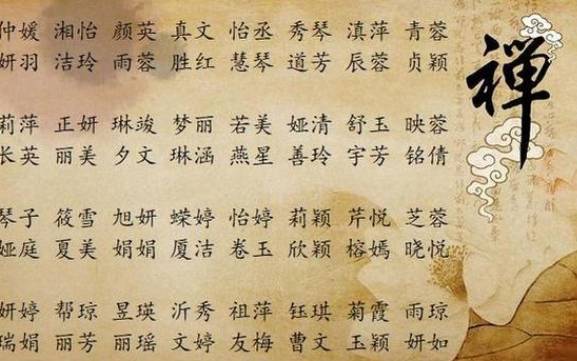 仲媛 湘怡 颜英 真文 怡丞 秀琴 滇萍 青蓉
妍羽 洁玲 雨蓉 胜红 慧琴 道芳 辰蓉 贞颖
莉萍 正妍 琳竣 梦丽 若美 娅清 舒玉 映蓉
长英 丽美 夕文 琳涵 燕星 善玲 宇芳 铭倩
琴子 筱雪 旭妍 嵘婷 怡婷 莉颖 芹悦 芝蓉
娅庭 夏美 娟娟 厦洁 卷玉 欣颖 榕嫣 晓悦
妍婷 帮琼 昱瑛 沂秀 祖萍 钰琪 菊霞 雨琼
瑞娟 丽芳 丽瑶 文婷 友梅 曹文 玉颖 妍如
禅